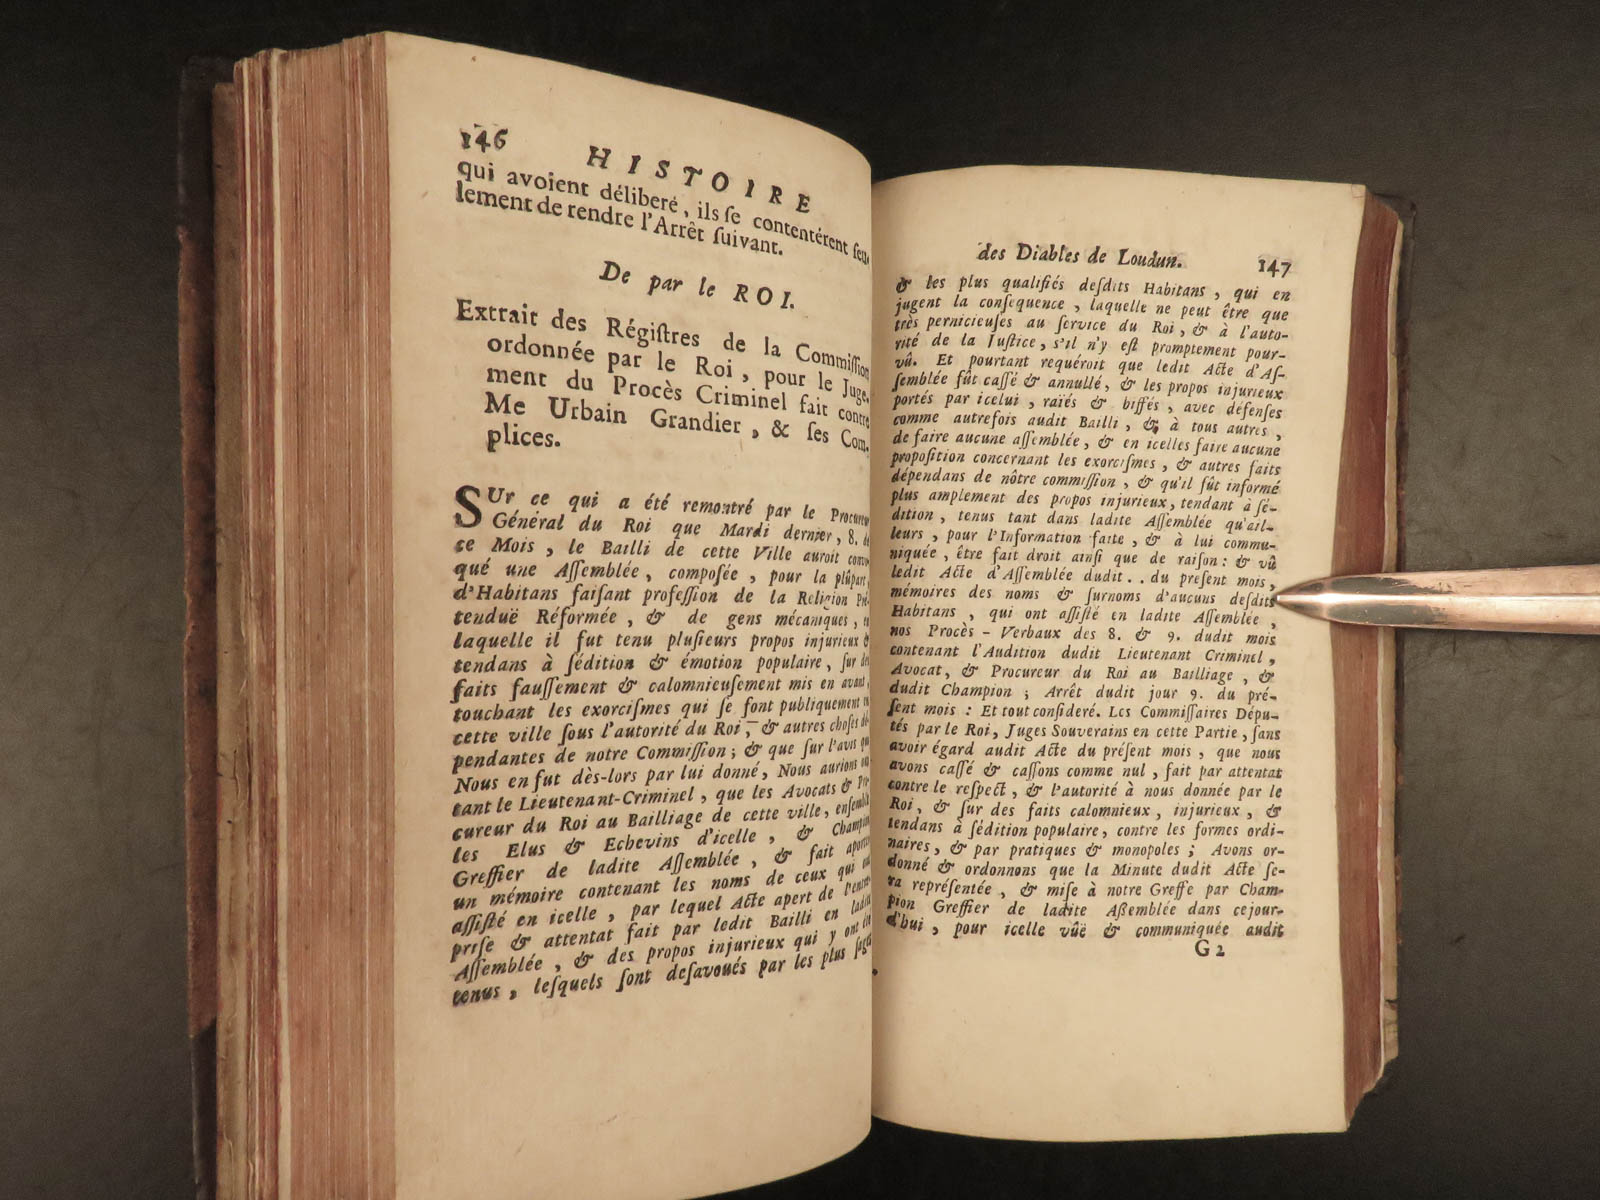 146 HISTOIRE
qui avoient déliberé, ils ſe contentérent ſeu-
lement de rendre l'Arrêt ſuivant.
De par le ROI.
Extrait des Régiſtres de la Commiſſion
ordonnée par le Roi, pour le Juge-
ment du Procès Criminel fait contre
Me Urbain Grandier, & ſes Com-
plices.
SUr ce qui a été remontré par le Procureur
Général du Roi que Mardi dernier, 8. de
ce Mois, le Bailli de cette Ville auroit convo-
qué une Aſſemblée, compoſée, pour la plûpart,
d'Habitans faiſant profeſſion de la Religion Pré-
tenduë Réformée, & de gens mécaniques, en
laquelle il fut tenu pluſieurs propos injurieux &
tendans à ſédition & émotion populaire, ſur des
faits fauſſement & calomnieuſement mis en avant,
touchant les exorciſmes qui ſe font publiquement en
cette ville ſous l'autorité du Roi, & autres choſes dé-
pendantes de notre Commiſſion; & que ſur l'avis qui
Nous en fut dès-lors par lui donné, Nous aurions
tant le Lieutenant-Criminel, que les Avocats & Pro-
cureur du Roi au Bailliage de cette ville, enſemble
les Elus & Echevins d'icelle, & Champion
Greffier de ladite Aſſemblée, & fait aporter
un mémoire contenant les noms de ceux qui ont
aſſiſté en icelle, par lequel Acte apert de l'entre-
priſe & attentat fait par ledit Bailli en ladite
Aſſemblée, & des propos injurieux qui y ont été
tenus, leſquels ſont deſavoués par les plus ſages
des Diables de Loudun. 147
& les plus qualifiés deſdits Habitans, qui en
jugent la conſequence, laquelle ne peut être que
très pernicieuſes au ſervice du Roi, & à l'auto-
rité de la Juſtice, s'il n'y eſt promptement pour-
vû. Et pourtant requéroit que ledit Acte d'Aſ-
ſemblée fût caſſé & annullé, & les propos injurieux
portés par icelui, raïés & biffés, avec défenſes
comme autrefois audit Bailli, & à tous autres,
de faire aucune aſſemblée, & en icelles faire aucune
propoſition concernant les exorciſmes, & autres faits
dépendans de nôtre commiſſion, & qu'il fût informé
plus amplement des propos injurieux, tendant à ſé-
dition, tenus tant dans ladite Aſſemblée qu'ail-
leurs, pour l'Information faite, & à lui commu-
niquée, être fait droit ainſi que de raiſon: & vû
ledit Acte d'Aſſemblée dudit . . du preſent mois,
mémoires des noms & ſurnoms d'aucuns deſdits
Habitans, qui ont aſſiſté en ladite Aſſemblée,
nos Procès-Verbaux des 8. & 9. dudit mois
contenant l'Audition dudit Lieutenant Criminel,
Avocat, & Procureur du Roi au Bailliage, &
dudit Champion; Arrêt dudit jour 9. du pré-
ſent mois: Et tout conſideré. Les Commiſſaires Dépu-
tés par le Roi, Juges Souverains en cette Partie, ſans
avoir égard audit Acte du préſent mois, que nous
avons caſſé & caſſons comme nul, fait par attentat
contre le reſpect, & l'autorité à nous donnée par le
Roi, & ſur des faits calomnieux, injurieux, &
tendans à ſédition populaire, contre les formes ordi-
naires, & par pratiques & monopoles; Avons or-
donné & ordonnons que la Minute dudit Acte ſe-
ra repréſentée, & miſe à notre Greffe par Cham-
pion Greffier de ladite Aßemblée dans cejour-
d'hui, pour icelle vûë & communiquée audit
G 2